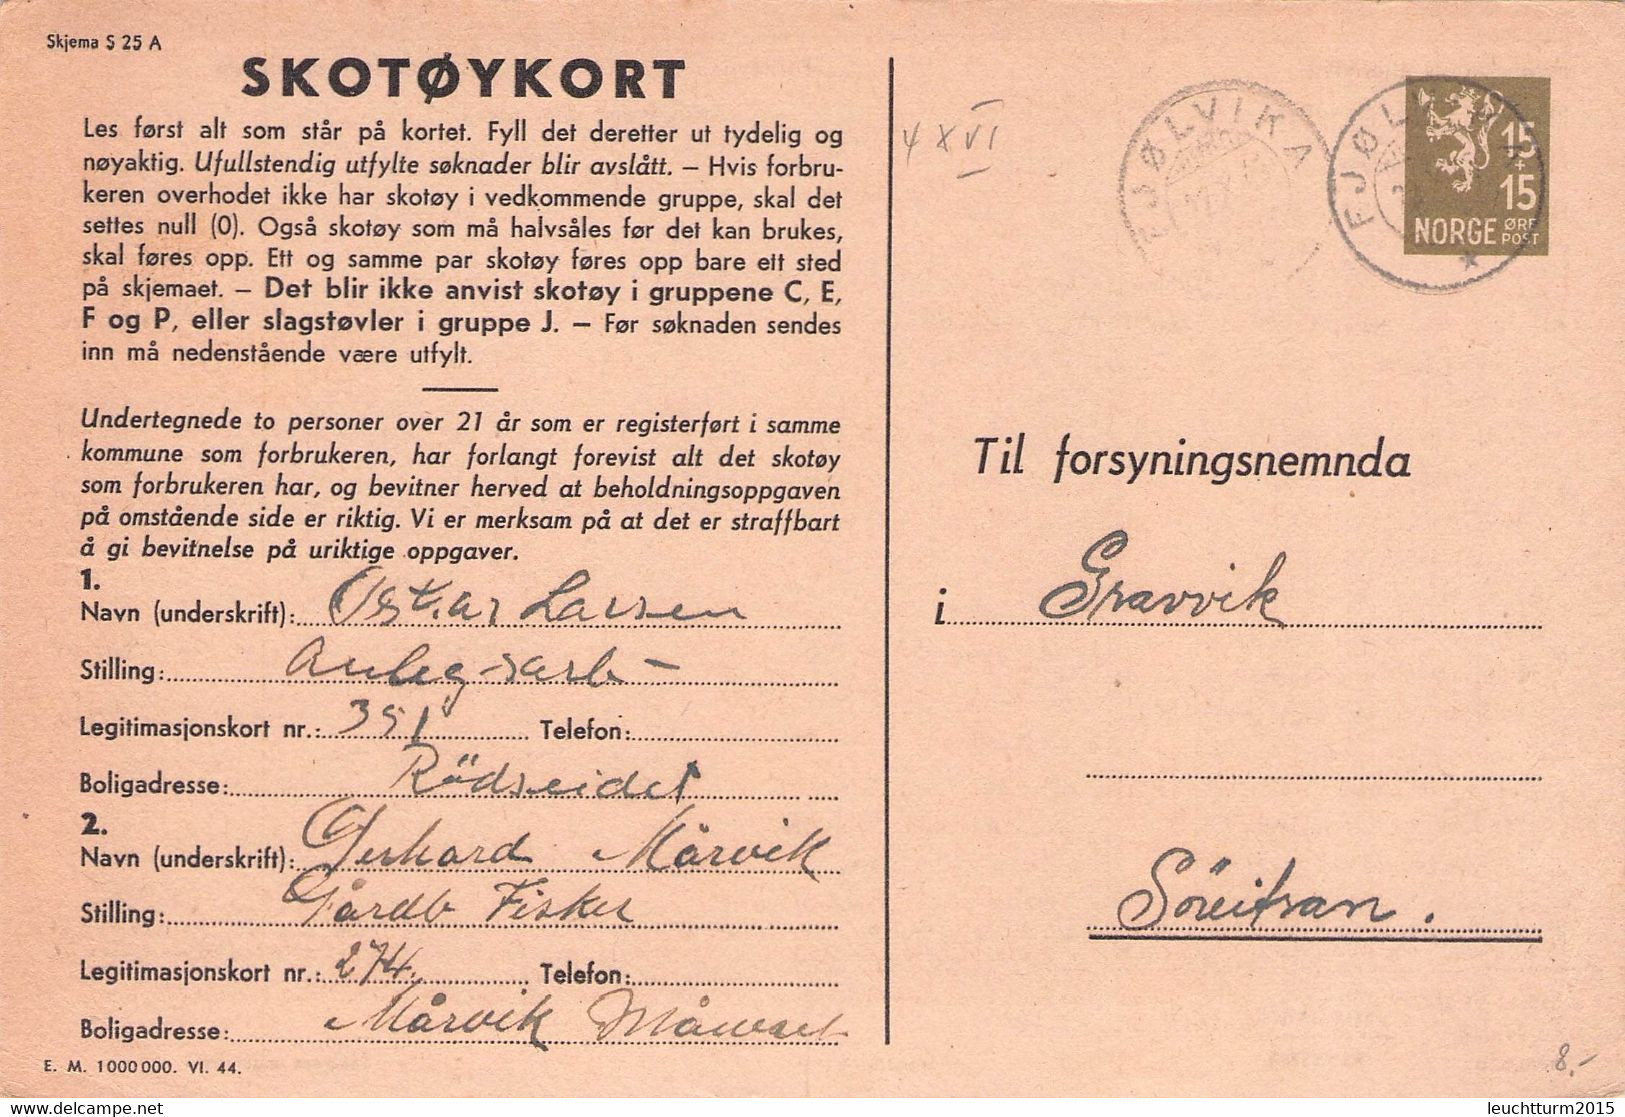 Skjema S 25 A
SKOTØYKORT
Les først alt som står på kortet. Fyll det deretter ut tydelig og
nøyaktig. Ufullstendig utfylte søknader blir avslått. – Hvis forbru-
keren overhodet ikke har skotøy i vedkommende gruppe, skal det
settes null (0). Også skotøy som må halvsåles før det kan brukes,
skal føres opp. Ett og samme par skotøy føres opp bare ett sted
på skjemaet. – Det blir ikke anvist skotøy i gruppene C, E,
F og P, eller slagstøvler i gruppe J. – Før søknaden sendes
inn må nedenstående være utfylt.
Undertegnede to personer over 21 år som er registerført i samme
kommune som forbrukeren, har forlangt forevist alt det skotøy
som forbrukeren har, og bevitner herved at beholdningsoppgaven
på omstående side er riktig. Vi er merksam på at det er straffbart
å gi bevitnelse på uriktige oppgaver.
1.
Navn (underskrift): Oskar Larsen
Stilling: Anlegsarb
Legitimasjonskort nr.: 351 Telefon:
Boligadresse: Rödseidet
2.
Navn (underskrift): Gerhard Mårvik
Stilling: Gårdb Fisker
Legitimasjonskort nr.: 274. Telefon:
Boligadresse: Mårvik
E. M. 1000000. VI. 44.
4 X VI
FJØLVIKA
FJØL
15
+
15
NORGE ØRE
POST
Til forsyningsnemnda
i Gravvik
8.-
leuchtturm2015